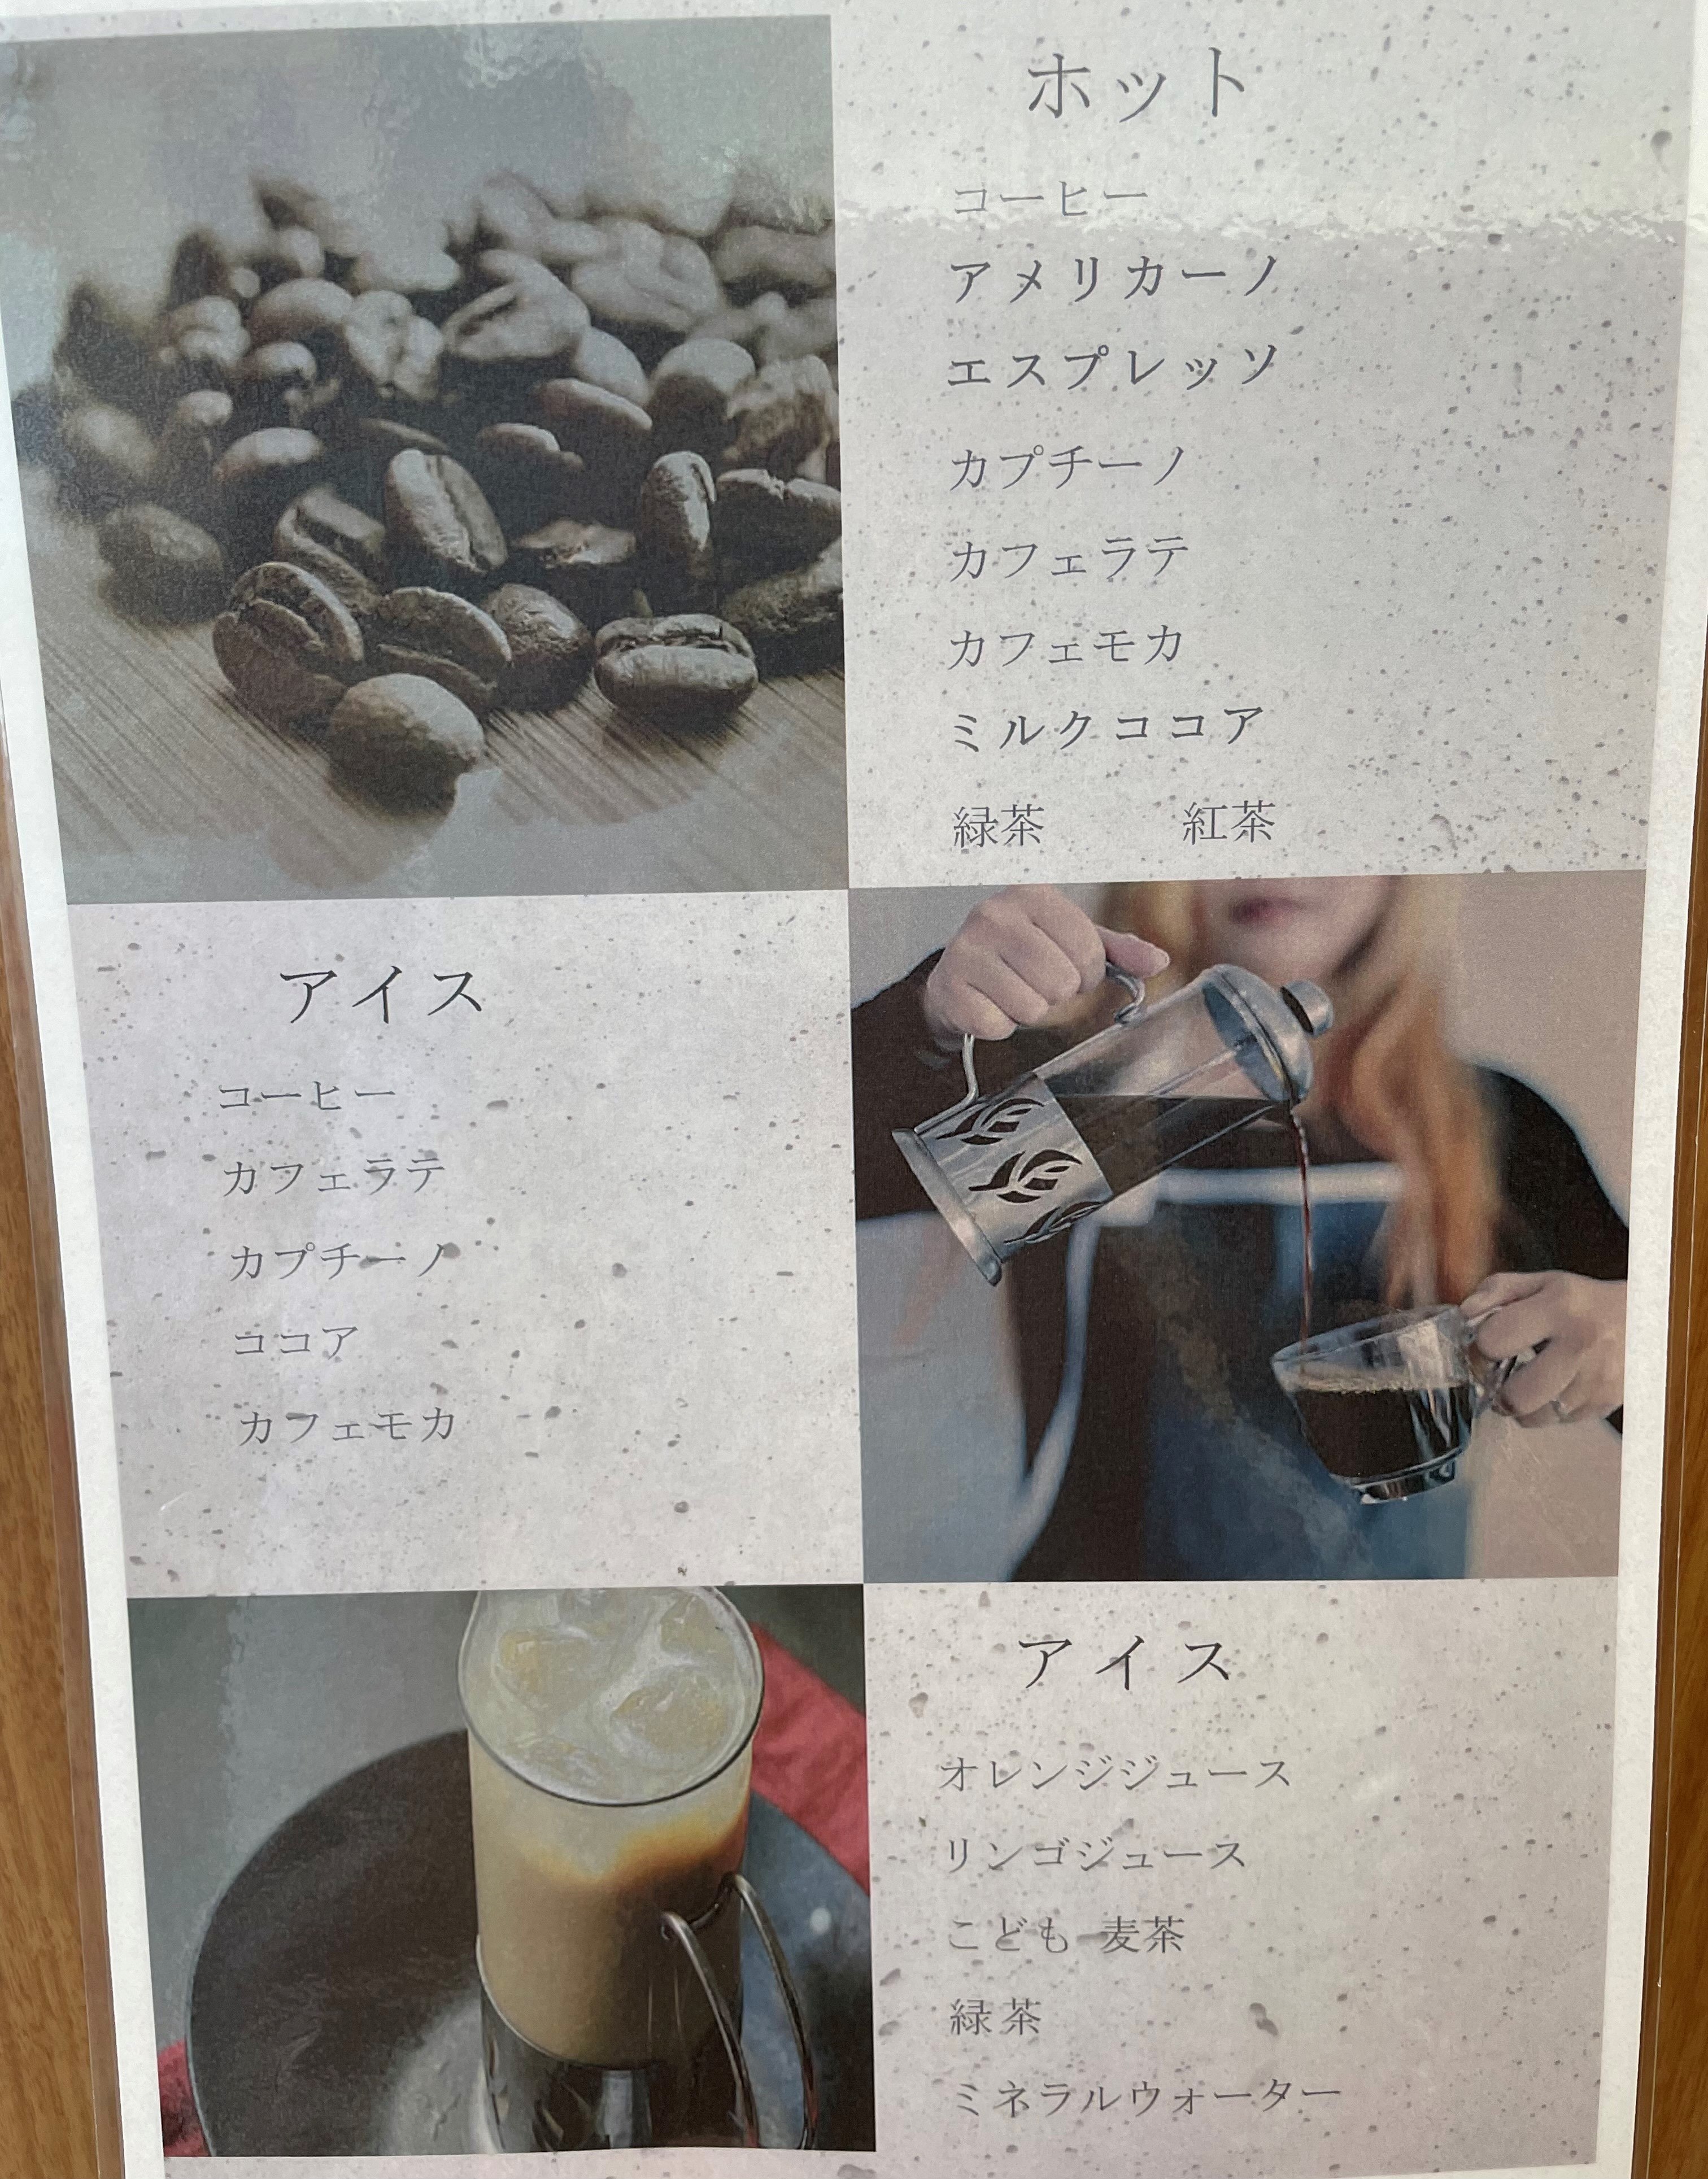 ホット
コーヒー
アメリカーノ
エスプレッソ
カプチーノ
カフェラテ
カフェモカ
ミルクココア
緑茶 紅茶
アイス
コーヒー
カフェラテ
カプチーノ
ココア
カフェモカ
アイス
オレンジジュース
リンゴジュース
こども 麦茶
緑茶
ミネラルウォーター